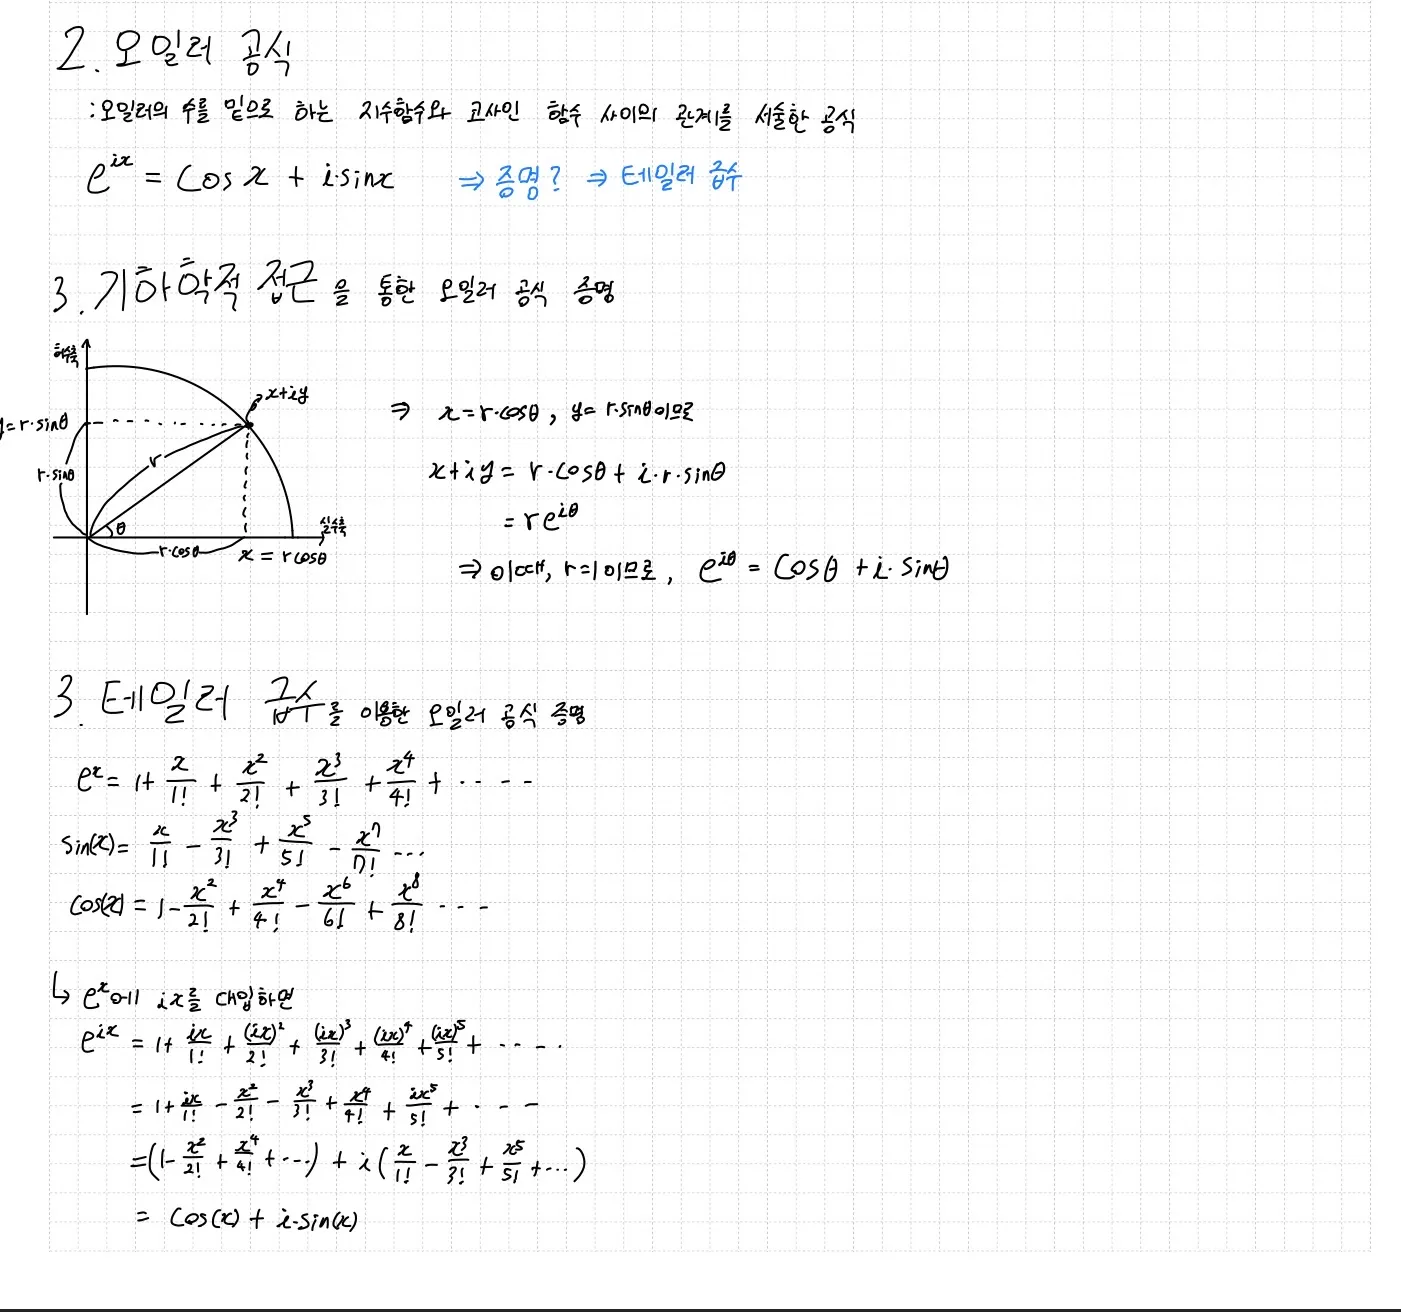 2. 오일러 공식
: 오일러의 수를 밑으로 하는 지수함수와 코사인 함수 사이의 관계를 서술한 공식
e^{ix} = cos x + i·sinx ⇒ 증명? ⇒ 테일러 급수
3. 기하학적 접근을 통한 오일러 공식 증명
허수축
x+iy
y=r·sinθ
r·sinθ
r
θ
실수축
r·cosθ
x = rcosθ
⇒ x=r·cosθ, y= r·sinθ이므로
x+iy = r·cosθ + i·r·sinθ
= re^{iθ}
⇒ 이때, r=1이므로, e^{iθ} = cosθ + i·sinθ
3. 테일러 급수를 이용한 오일러 공식 증명
e^x = 1+ x/1! + x^2/2! + x^3/3! + x^4/4! + ‥‥--
sin(x)= x/1! - x^3/3! + x^5/5! - x^7/7! ...
cos(x) = 1- x^2/2! + x^4/4! - x^6/6! + x^8/8! ‥--
↳ e^x에 ix를 대입하면
e^{ix} = 1+ ix/1! + (ix)^2/2! + (ix)^3/3! + (ix)^4/4! + (ix)^5/5! + ‥‥-·
= 1+ ix/1! - x^2/2! - x^3/3! + x^4/4! + ix^5/5! + ··--
=(1- x^2/2! + x^4/4! + ‥‥) + i( x/1! - x^3/3! + x^5/5! +...)
= cos(x) + i·sin(x)